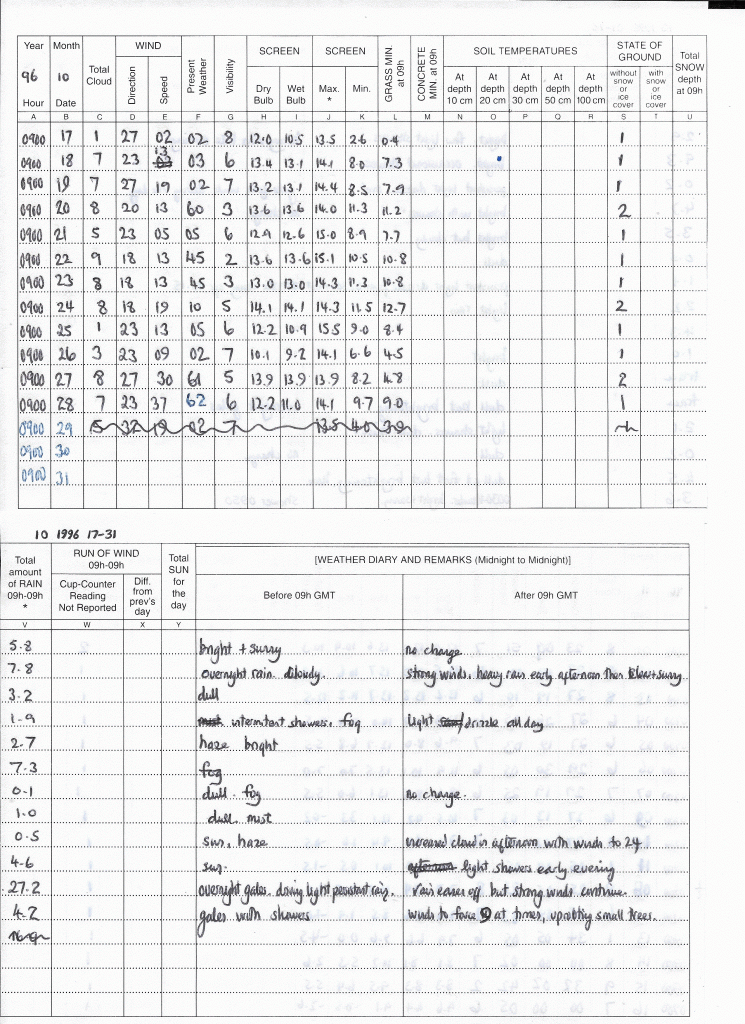 Year Month WIND SCREEN SCREEN SOIL TEMPERATURES STATE OF GROUND
96 10 Total Cloud Direction Speed Present Weather Visibility Dry Bulb Wet Bulb Max. * Min. GRASS MIN. at 09h CONCRETE MIN. at 09h At depth 10 cm At depth 20 cm At depth 30 cm At depth 50 cm At depth 100 cm without snow or ice cover with snow or ice cover Total SNOW depth at 09h
Hour Date
A B C D E F G H I J K L M N O P Q R S T U
0900 17 1 27 02 02 8 12.0 10.5 13.5 2.6 0.4 1
0900 18 7 23 13 03 6 13.4 13.1 14.1 8.0 7.3 1
0900 19 7 27 19 02 7 13.2 13.1 14.4 8.5 7.9 1
0900 20 8 20 13 60 3 13.6 13.6 14.0 11.3 11.2 2
0900 21 5 23 05 05 6 12.9 12.6 15.0 8.9 7.7 1
0900 22 9 18 13 45 2 13.6 13.6 15.1 10.5 10.8 1
0900 23 8 18 13 45 3 13.0 13.0 14.3 11.3 10.8 1
0900 24 8 18 19 10 5 14.1 14.1 14.3 11.5 12.7 2
0900 25 1 23 13 05 6 12.2 10.9 15.5 9.0 8.4 1
0900 26 3 23 09 02 7 10.1 9.2 14.1 6.6 4.5 1
0900 27 8 27 30 61 5 13.9 13.9 13.9 8.2 4.8 2
0900 28 7 23 37 62 6 12.2 11.0 14.1 9.7 9.0 1
0900 29 5 32 19 02 7 13.5 4.0 3.9
0900 30
0900 31
10 1996 17-31
Total amount of RAIN 09h-09h * RUN OF WIND 09h-09h Total SUN for the day [WEATHER DIARY AND REMARKS (Midnight to Midnight)]
Cup-Counter Reading Not Reported Diff. from prev's day Before 09h GMT After 09h GMT
V W X Y
5.8 bright + sunny no change
7.8 overnight rain. cloudy. strong winds, heavy rain early afternoon then clear + sunny
3.2 dull
1.9 intermitant showers. fog light drizzle all day
2.7 haze bright
7.3 fog
0.1 dull. fog no change.
1.0 dull. mist
0.5 sun, haze increased cloud in afternoon with winds to 24
4.6 sun. afternoon light showers early evening
27.2 overnight gales. driving light persistant rain. rain eases off but strong winds continue.
4.2 gales with showers winds to force 9 at times, uprooting small trees.